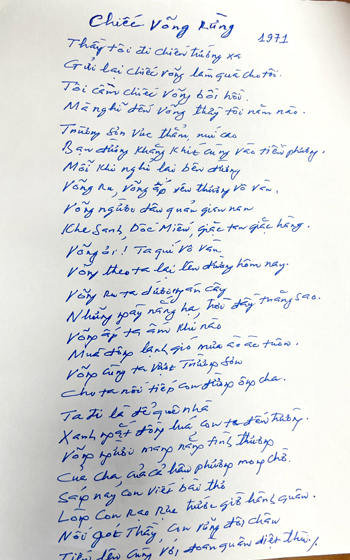 Chiếc Võng Rừng
1971
Thầy tôi đi chiến trường xa
Gửi lại chiếc võng làm quà cho tôi.
Tôi cầm chiếc võng bồi hồi.
Mà nghĩ đến võng thầy tôi năm nào.
Trường Sơn vực thẳm, núi cao
Bạn đường khăng khít cùng vào tiền phương.
Mỗi khi nghỉ lại bên đường
Võng ru, võng ấp yêu thương vô vàn.
Võng người đâu quản gian nan
Khe Sanh, Dốc Miếu, giặc tan giặc hàng.
Võng ơi! Ta quí vô vàn
Võng theo ta lại lên đường hôm nay.
Võng ru ta dưới ngàn cây
Những ngày nắng hạ, trời đầy trăng sao.
Võng ấp ta ấm khi nào
Mùa đông lạnh gió mưa ào ác tuôn.
Võng cùng ta vượt Trường Sơn
Cho ta nối tiếp con đường ông cha.
Ta đi là để quê nhà
Xanh ngắt đồng lúa, con ta đến trường.
Võng người mang nặng tình thương
Của cha, của cả hậu phương mong chờ.
Sau này con viết bài thơ
Lớp con rao rực trước giờ hành quân.
Nối gót Thầy, con vững đôi chân
Tiến lên cùng với đoàn quân diệt thù./.